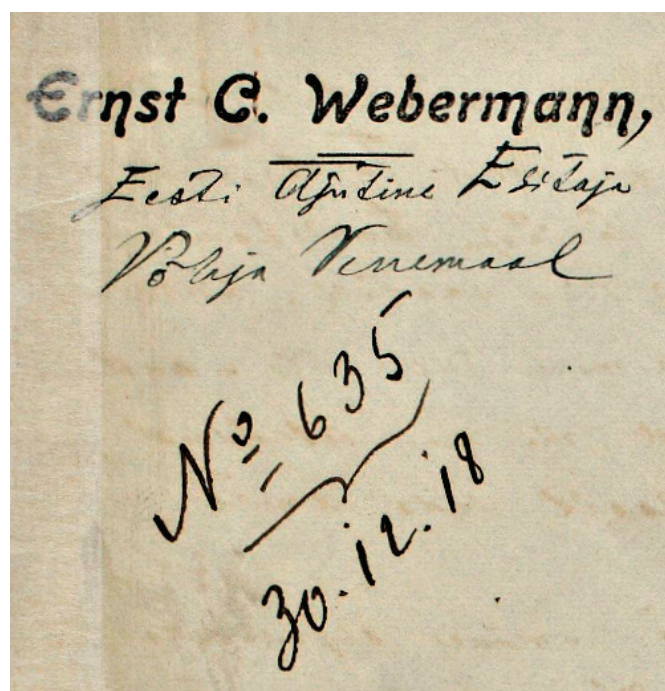 Ernst C. Webermann,
Eesti Ajutine Esitaja
Põhja Venemaal
№ 635
30.12.18